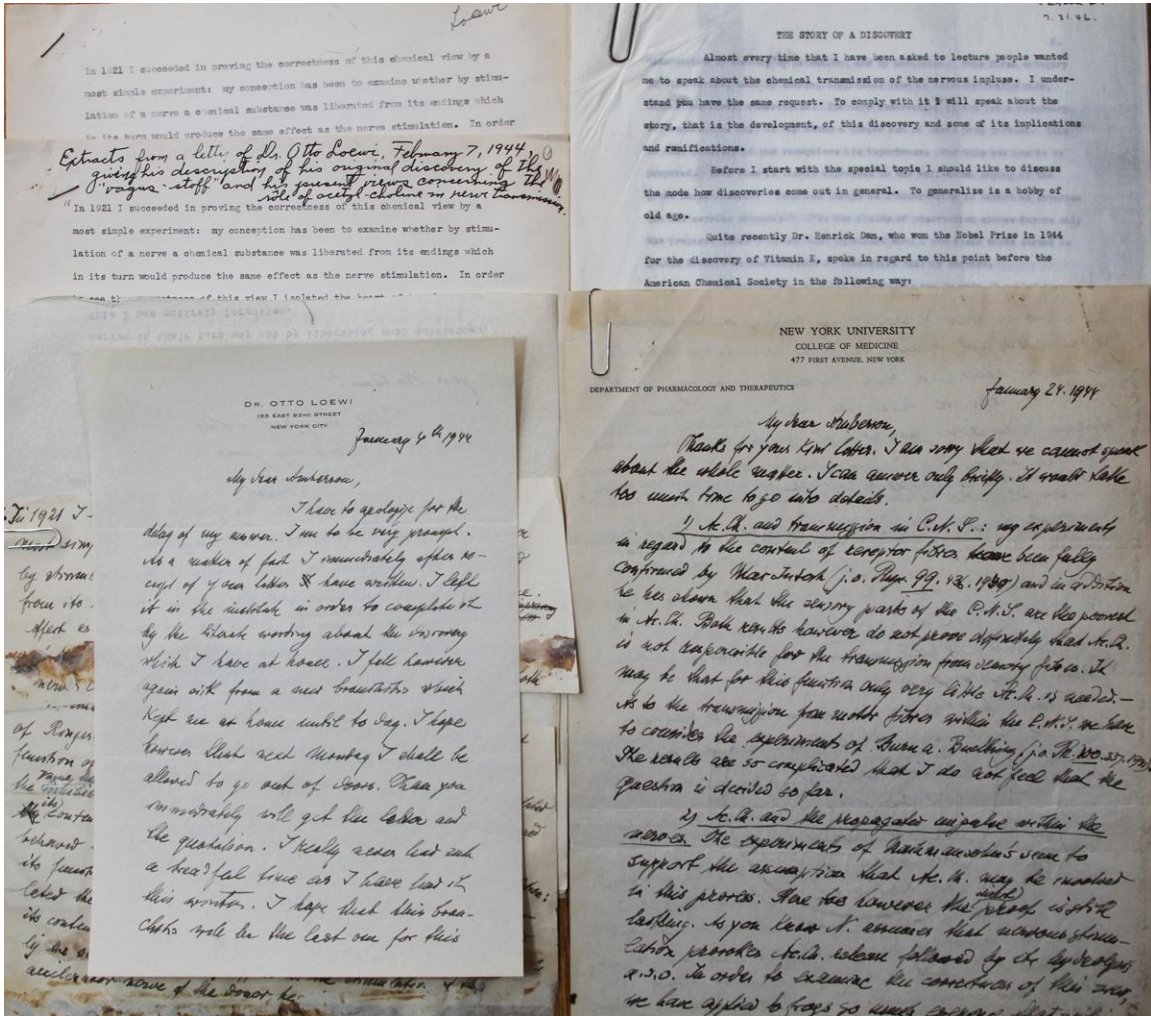 Loewi
In 1921 I succeeded in proving the correctness of this chemical view by a
most simple experiment: my conception has been to examine whether by stimu-
lation of a nerve a chemical substance was liberated from its endings which
in its turn would produce the same effect as the nerve stimulation. In order
Extracts from a letter of Dr. Otto Loewi, February 7, 1944,
giving his description of his original discovery of the
"vagus-stoff" and his present views concerning the
role of acetyl-choline in nerve transmission.
"In 1921 I succeeded in proving the correctness of this chemical view by a
most simple experiment: my conception has been to examine whether by stimu-
lation of a nerve a chemical substance was liberated from its endings which
in its turn would produce the same effect as the nerve stimulation. In order
of this view I isolated the heart of
7.21.46.
THE STORY OF A DISCOVERY
Almost every time that I have been asked to lecture people wanted
me to speak about the chemical transmission of the nervous impluse. I under-
stand you have the same request. To comply with it I will speak about the
story, that is the development, of this discovery and some of its implications
and ramifications.
Before I start with the special topic I should like to discuss
the mode how discoveries come out in general. To generalize is a hobby of
old age.
Quite recently Dr. Henrick Dam, who won the Nobel Prize in 1944
for the discovery of Vitamin K, spoke in regard to this point before the
American Chemical Society in the following way:
This I has entirely forgotten.
DR. OTTO LOEWI
155 EAST 93RD STREET
NEW YORK CITY
January 4th 1944
My dear Amberson,
I have to apologize for the
delay of my answer. I use to be very prompt.
As a matter of fact I immediately after re-
ceipt of your letter have written. I left
it in the institute in order to complete it
by the literate wording about the discovery
which I have at home. I fell however
again sick from a new bronchitis which
kept me at home until to day. I hope
however that next Monday I shall be
allowed to go out of doors. Then you
immediately will get the letter and
the quotation. I really never had such
a dreadful time as I have had it
this winter. I hope that this bron-
chitis will be the last one for this
NEW YORK UNIVERSITY
COLLEGE OF MEDICINE
477 FIRST AVENUE, NEW YORK
DEPARTMENT OF PHARMACOLOGY AND THERAPEUTICS
January 24. 1944
My dear Amberson,
Thanks for your kind letter. I am sorry that we cannot speak
about the whole matter. I can answer only briefly. It would take
too much time to go into details.
1) Ac.Ch. and transmission in C.N.S.: my experiments
in regard to the content of receptor fibres have been fully
confirmed by MacIntosh (j.o. Phys. 99. 1939) and in addition
he has shown that the sensory parts of the C.N.S. are the poorest
in Ac.Ch. Both results however do not prove definitely that Ac.Ch.
is not responsible for the transmission from sensory fibres. It
may be that for this function only very little Ac.Ch. is needed.—
As to the transmission from motor fibres within the C.N.S. we have
to consider the experiments of Burn a. Buelbring (j.o. Ph. 100.
The results are so complicated that I do not feel that the
question is decided so far.
2) Ac.Ch. and the propagated impulse within the
nerves The experiments of Nachmansohn's seem to
support the assumption that Ac.Ch. may be involved
in this process. Here too however the direct proof is still
lacking. As you know N. assumes that nervous stimu-
lation provokes Ac.Ch. release followed by its hydrolysis
a.s.o. In order to examine the correctness of this view,
we have applied to frogs so much
"In 1921 I
by
from its
effect as
of Ringer
function of
the
its
behaved
its
its
accelerator nerve of the donor